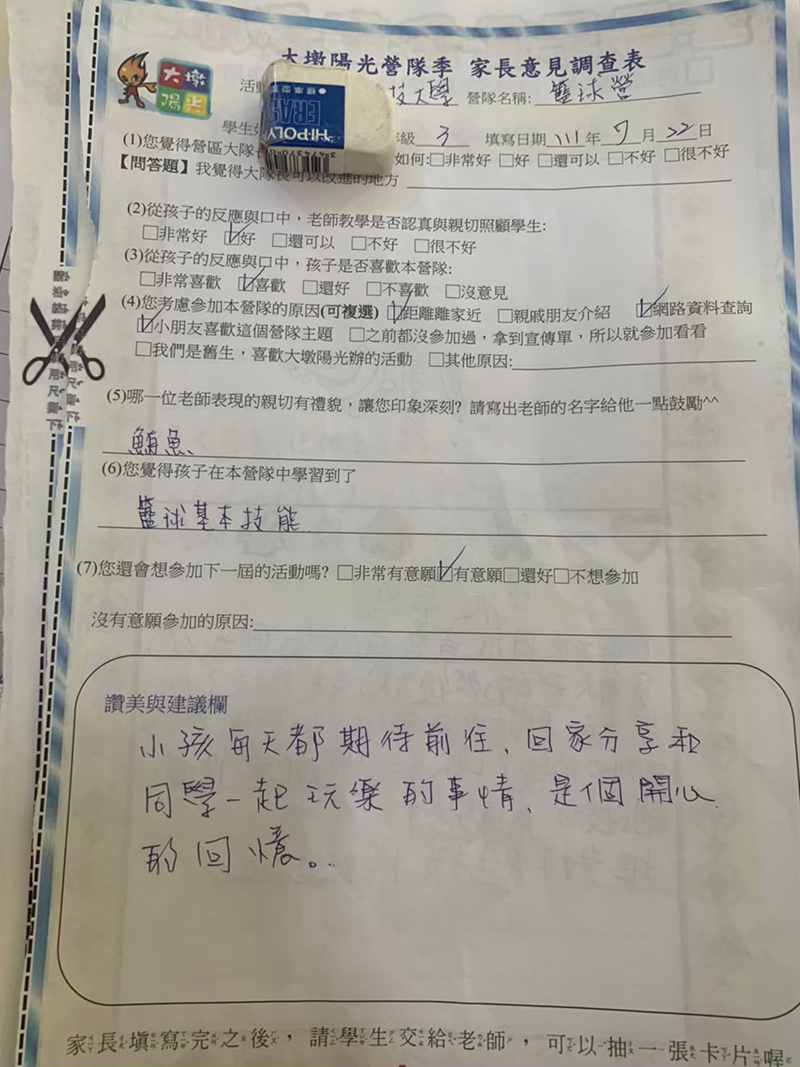 大墩陽光營隊季 家長意見調查表
大墩
陽光
活動 技大學 營隊名稱: 籃球營
HI-POLY
ERAS
標準型
學生 級 3 填寫日期 111 年 7 月 22 日
(1)您覺得營區大隊長 如何:□非常好 □好 □還可以 □不好 □很不好
【問答題】我覺得大隊長可以改進的地方
(2)從孩子的反應與口中，老師教學是否認真與親切照顧學生:
□非常好 ☑好 □還可以 □不好 □很不好
(3)從孩子的反應與口中，孩子是否喜歡本營隊:
□非常喜歡 ☑喜歡 □還好 □不喜歡 □沒意見
(4)您考慮參加本營隊的原因(可複選) ☑距離離家近 □親戚朋友介紹 ☑網路資料查詢
☑小朋友喜歡這個營隊主題 □之前都沒參加過，拿到宣傳單，所以就參加看看
□我們是舊生，喜歡大墩陽光辦的活動 □其他原因:
(5)哪一位老師表現的親切有禮貌，讓您印象深刻? 請寫出老師的名字給他一點鼓勵^^
鮪魚
(6)您覺得孩子在本營隊中學習到了
籃球基本技能
(7)您還會想參加下一屆的活動嗎? □非常有意願☑有意願□還好□不想參加
沒有意願參加的原因:
讚美與建議欄
小孩每天都期待前往、回家分享和
同學一起玩樂的事情、是個開心
的回憶。
家長填寫完之後，請學生交給老師，可以抽一張卡片喔